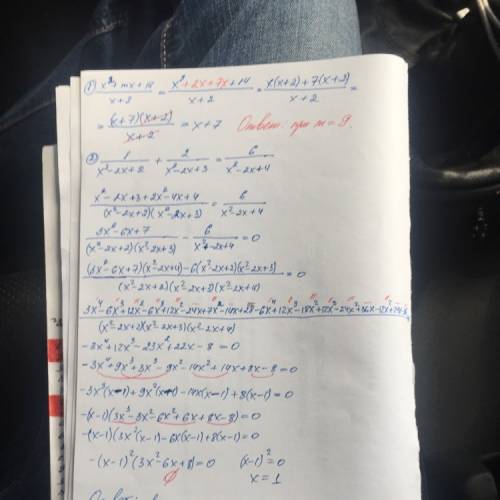 1) (x²+mx+14)/(x+2) = (x²+2x+7x+14)/(x+2) = (x(x+2)+7(x+2))/(x+2) =
= ((x+7)(x+2))/(x+2) = x+7 Ответ: при m=9.
2) 1/(x²-2x+2) + 2/(x²-2x+3) = 6/(x²-2x+4)
(x²-2x+3+2x²-4x+4)/((x²-2x+2)(x²-2x+3)) = 6/(x²-2x+4)
(3x²-6x+7)/((x²-2x+2)(x²-2x+3)) - 6/(x²-2x+4) = 0
((3x²-6x+7)(x²-2x+4)-6(x²-2x+2)(x²-2x+3))/((x²-2x+2)(x²-2x+3)(x²-2x+4)) = 0
(x²-2x+2)(x²-2x+3)(x²-2x+4)
-3x⁴+12x³-23x²+22x-8=0
-3x⁴+9x³+3x³-9x²-14x²+14x+8x-8=0
-3x³(x-1)+9x²(x-1)-14x(x-1)+8(x-1)=0
-(x-1)(3x³-3x²-6x²+6x+8x-8)=0
-(x-1)(3x²(x-1)-6x(x-1)+8(x-1)=0
-(x-1)²(3x²-6x+8)=0 (x-1)²=0
∅ x=1